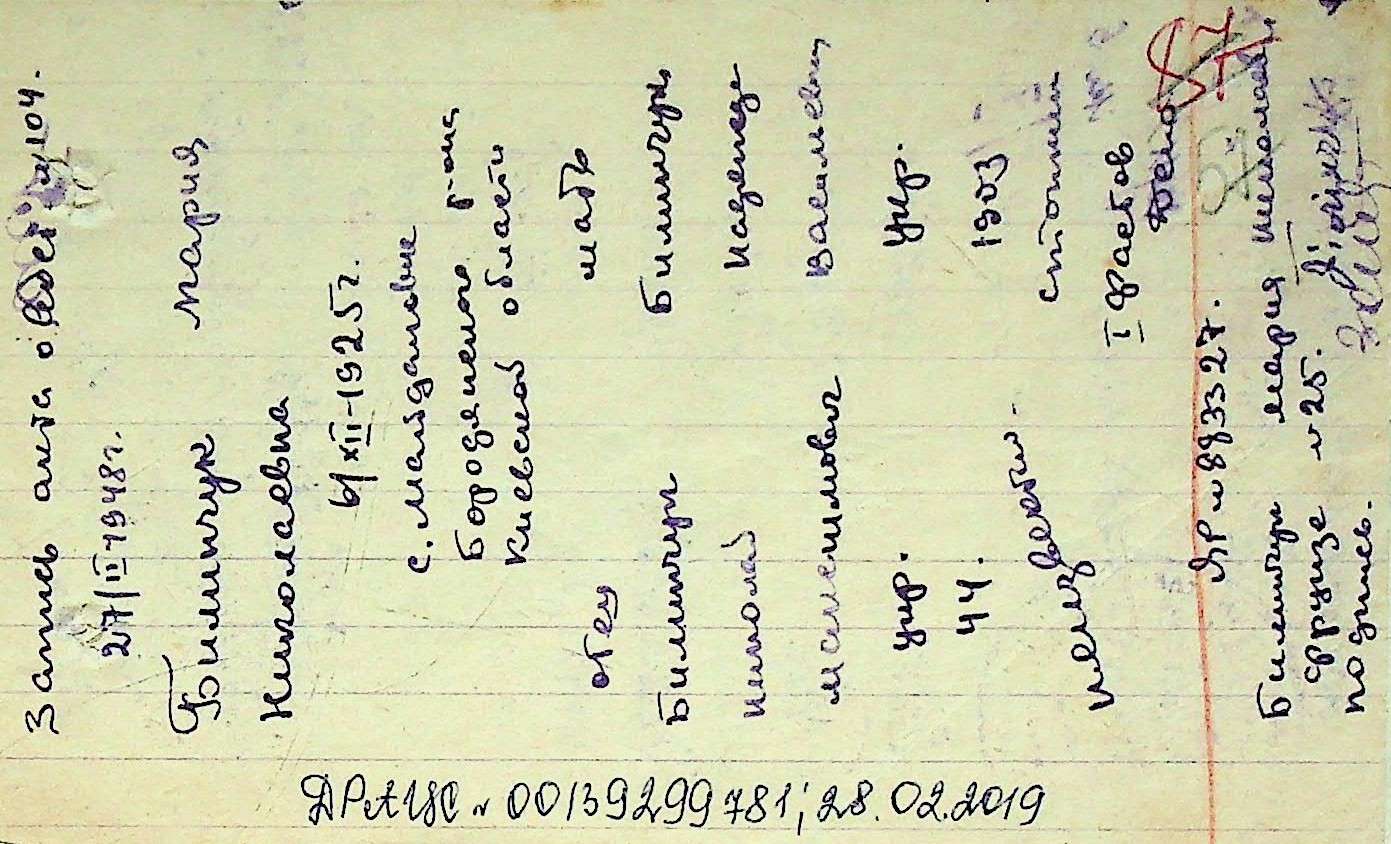 Запись акта о рожд. №104.
27/II-1948г.
Билинчук Мария
Николаевна
4/XII-1925г.
с. Майдановке
Бородянского р-на
Киевской области
отец мать
Билинчук Билинчук
Николай Надежда
Максимович Васильевна
укр. укр.
44. 1903
Фастов
87
57
ЯР №893327.
Билинчук Мария Николаевн
Фрунзе №25.
подпись.
ДРАЦС № 00139299781; 28.02.2019